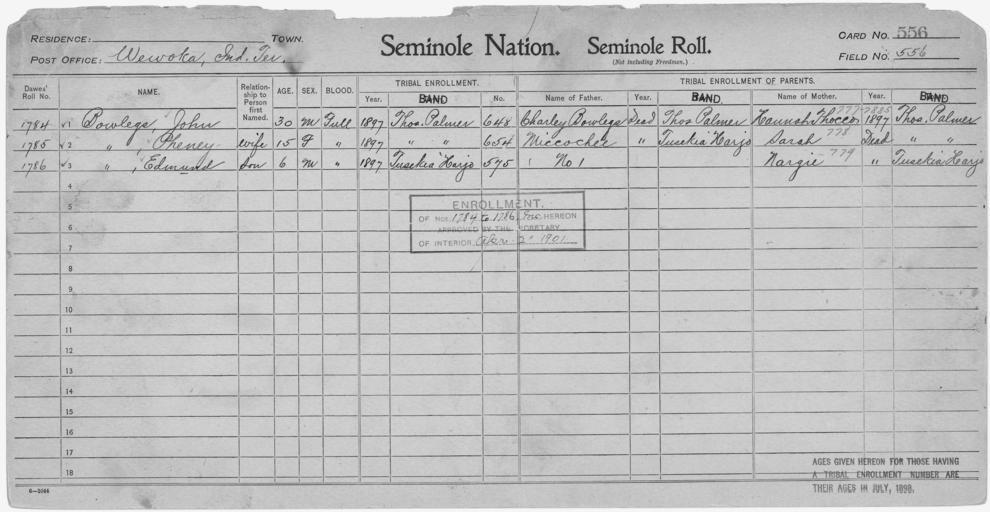 RESIDENCE: TOWN. Seminole Nation. Seminole Roll. CARD NO. 556
POST OFFICE: Wewoka, Ind. Ter. (Not including Freedmen.) FIELD NO. 556
Dawes' Roll No. NAME. Relationship to Person first Named. AGE. SEX. BLOOD. TRIBAL ENROLLMENT. TRIBAL ENROLLMENT OF PARENTS.
Year. BAND No. Name of Father. Year. BAND. Name of Mother. Year. BAND
1784 √1 Bowlegs, John 30 M Full 1897 Thos. Palmer 648 Charley Bowlegs Dead Thos. Palmer 777 1897 Thos. Palmer
1785 √2 " Pheney wife 15 F " 1897 " " 654 Miccocher " Tusekia Harjo Sarah 778 Dead " "
1786 √3 " , Edmund Son 6 M " 1897 Tusekia Harjo 575 No 1 Nargie 779 " Tusekia Harjo
4
5
6
7
8
9
10
11
12
13
14
15
16
17
18
ENROLLMENT.
OF NOS. 1784 to 1786, Inc HEREON
APPROVED BY THE SECRETARY
OF INTERIOR Apr. 2" 1901
AGES GIVEN HEREON FOR THOSE HAVING
A TRIBAL ENROLLMENT NUMBER ARE
THEIR AGES IN JULY, 1898.